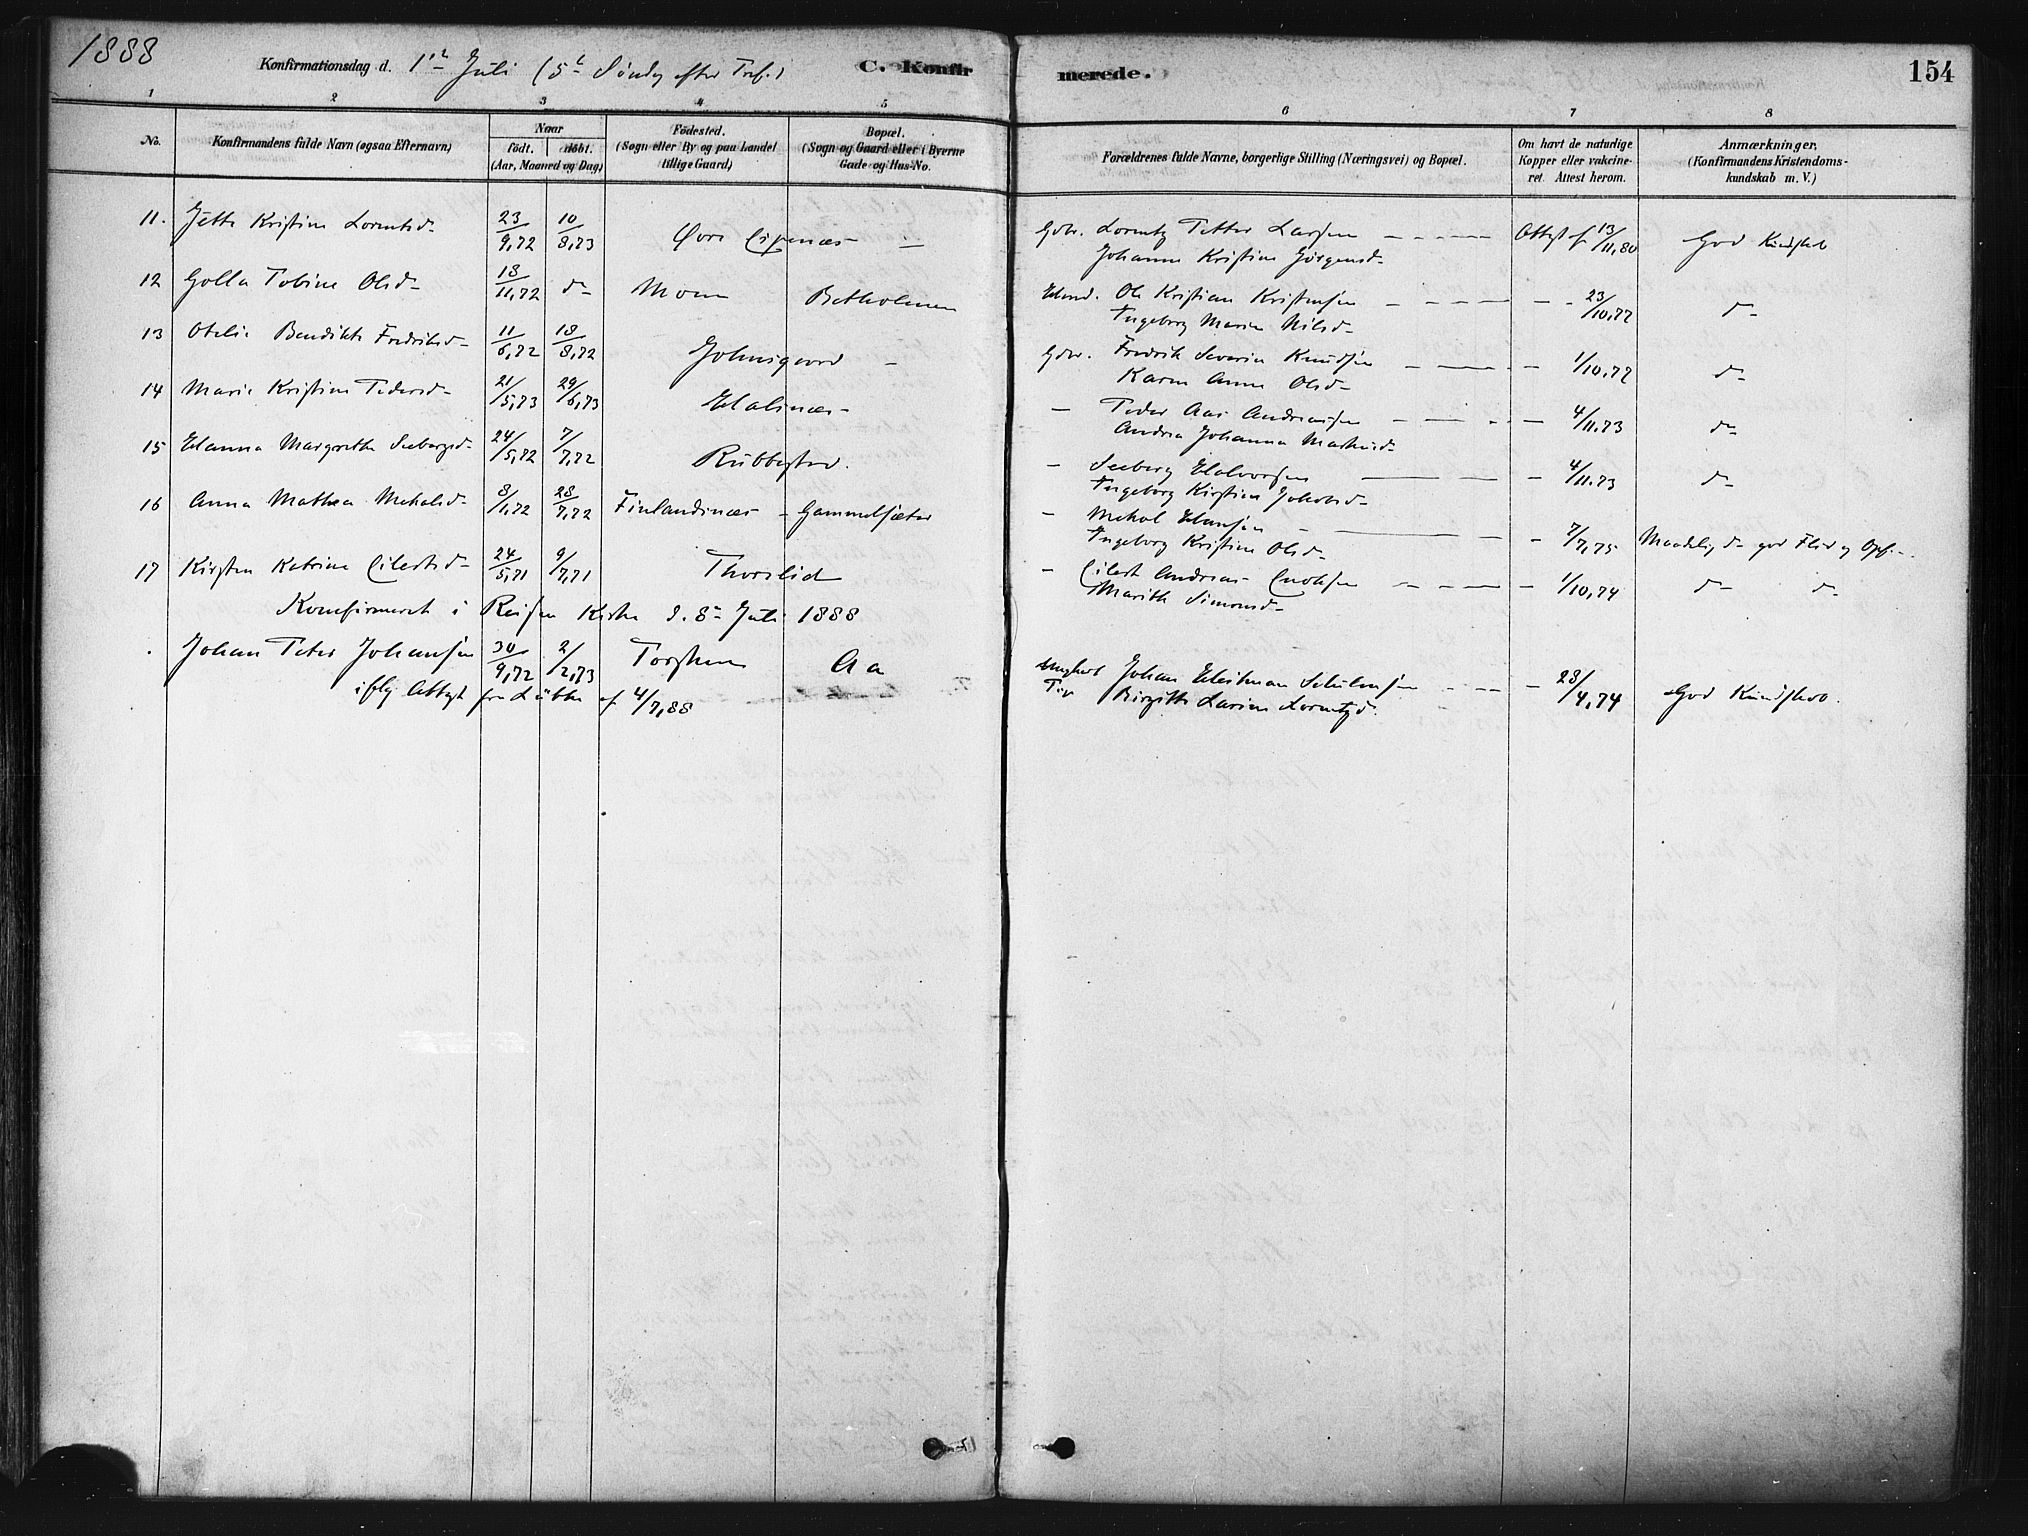 1888
Konfirmationsdag d. 1ste Juli (5te Søndag efter Tref.)
C. Konfirmerede.
154
1 2 3 4 5 6 7 8
No.
Konfirmandens fulde Navn (ogsaa Efternavn)
Naar
født. døbt.
(Aar, Maaned og Dag)
Fødested.
(Sogn eller By og paa Landet
tillige Gaard)
Bopæl.
(Sogn og Gaard eller i Byerne
Gade og Hus-No.
Forældrenes fulde Navne, borgerlige Stilling (Næringsvei) og Bopæl.
Om havt de naturlige
Kopper eller vakcine-
ret. Attest herom.
Anmærkninger.
(Konfirmandens Kristendoms-
kundskab m. V.)
11. Jette Kristine Lorentsd- 23/9,72 10/8,73 Øvre - Gbr. Lorentz Petter Larsen - Attest af 13/11,80 God Kundskab
Johanna Kristine Jørgensd-
12 Golla Tobine Olsd- 18/11,72 d- Moen Betholmen Ole Kristian Kristensen - 23/10,77 d-
Ingeborg Marie Nilsd-
13 Otelie Bendikte Fredriksd- 11/6,72 18/8,72 Johnsgaard - Gbr. Fredrik Severin Knudsen - 1/10,77 d-
Karen Anna Olsd-
14 Marie Kristine Pedersd- 21/5,73 29/6,73 - Peder Aas Andreassen - 4/11.73 d-
Andrea Johanna
15 Hanna Margrethe Seebergsd- 24/5,72 7/7,72 Rubbestad. - Seeberg Halvorsen - 4/11.73 d-
Ingeborg Kirstine Jakobsd-
16 Anna Mathea Mekalsd- 8/1,72 28/7,72 Finlandsnæs - Gammelsæter - Mekal Hansen - 7/7,75 Maadelig d- god Flid og Opf.
Ingeborg Kristine Olsd-
17 Kirsten Katrine Eilertsd- 24/5,71 9/7,71 Thorslid - Eilert Andreas Enoksen - 1/10,74 d- d-
Marith Simonsd-
Konfirmeret i Reisen Kirke d. 8de Juli 1888
Johan Peter Johansen 30/9,72 2/2,73 Torsken Aa Ungkarl Johan - 28/4,74 God Kundskab.
Pige Birgitte Larine Lorentzd.
iflg Attest fra af 4/7,88